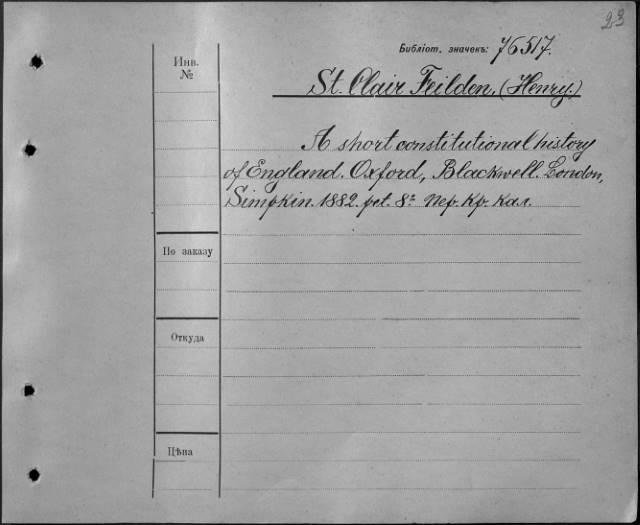 23
Библіот. значекъ: 76517.
Инв.
№
St. Clair Feilden, (Henry.)
A short constitutional history
of England. Oxford, Blackwell. London,
Simpkin. 1882. pet. 8º Пер. Кр. Кал.
По заказу
Откуда
Цѣна